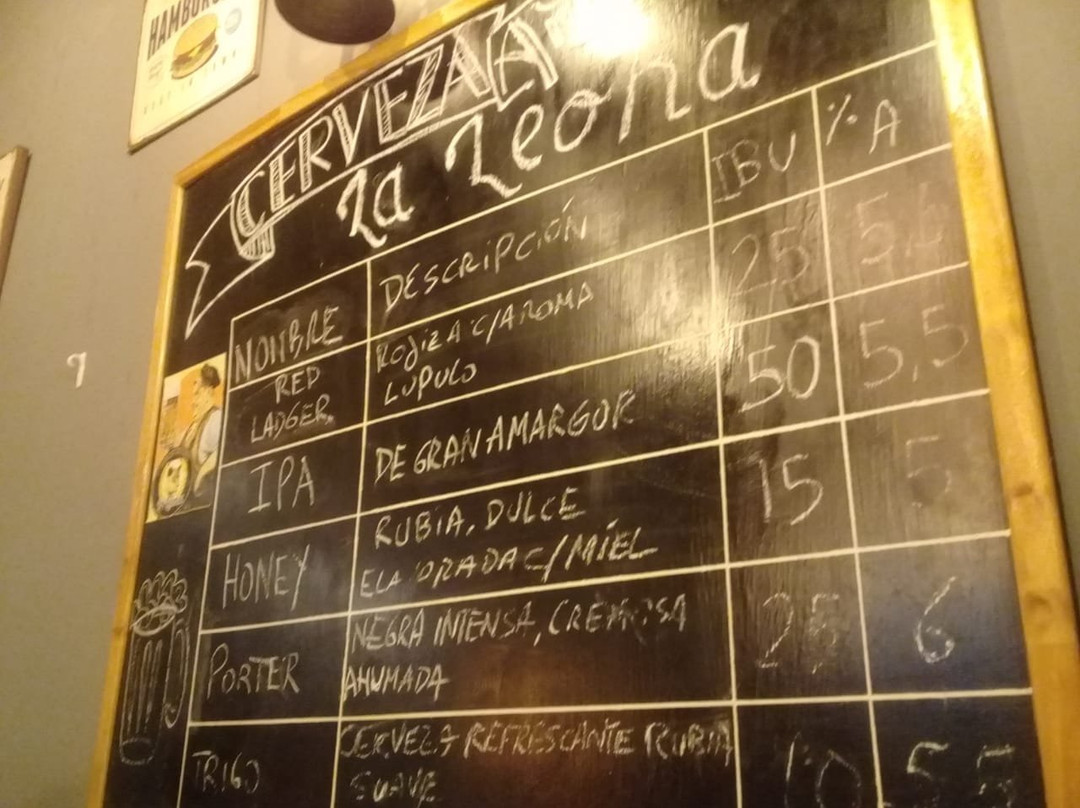 HAMBURG
CERVEZA
La Leona
NOMBRE DESCRIPCIÓN IBU % A
RED LADGER ROJIZA C/AROMA LUPULO 25
IPA DE GRAN AMARGOR 50 5,5
HONEY RUBIA, DULCE ELABORADA C/MIEL 15 5
PORTER NEGRA INTENSA, CREMOSA AHUMADA 25 6
TRIGO CERVEZA REFRESCANTE RUBIA SUAVE 10